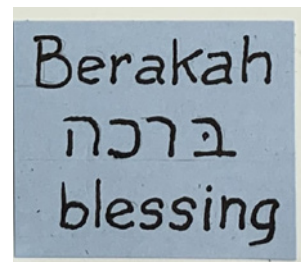 Berakah
ברכה
blessing